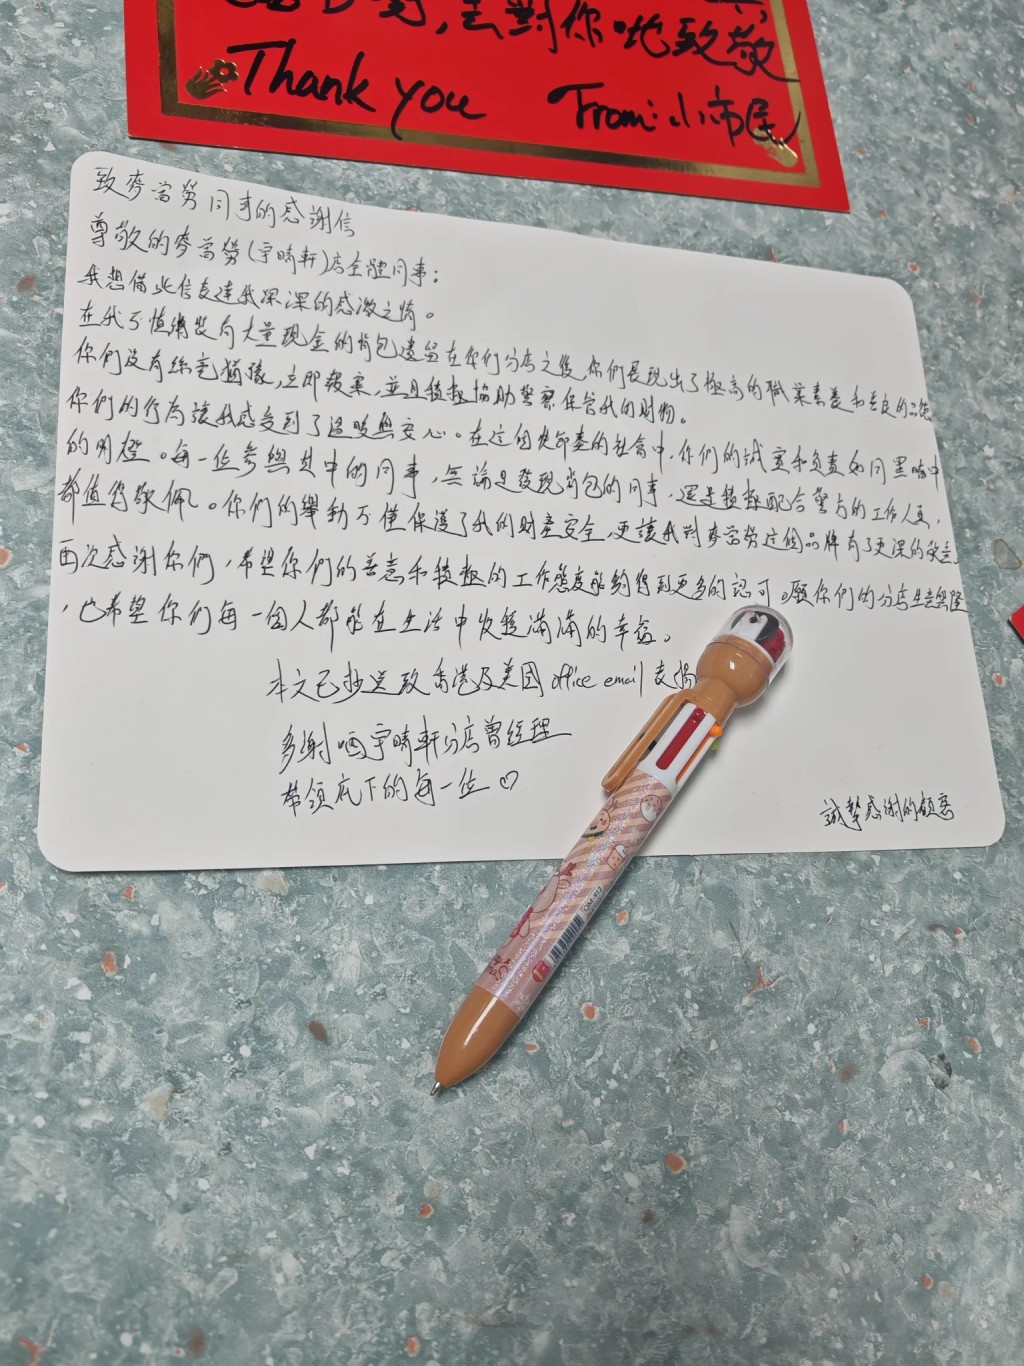 去對你哋致敬
Thank you From:小市民
致麥當勞同事的感謝信
尊敬的麥當勞(宇晴軒)店全體同事:
我想借此信表達我深深的感激之情。
在我不慎將裝有大量現金的背包遺留在你們分店之後,你們展現出了極高的職業素養和善良的品德
你們沒有絲毫猶豫,立即報案,並且積極協助警察保管我的財物。
你們的行為讓我感受到了溫暖與安心。在這個快節奏的社會中,你們的誠實和負責如同黑暗中
的明燈。每一位參與其中的同事,無論是發現背包的同事,還是積極配合警方的工作人員,
都值得敬佩。你們的舉動不僅保護了我的財產安全,更讓我對麥當勞這個品牌有了更深的敬意
再次感謝你們,希望你們的善意和積極的工作態度能夠得到更多的認可。願你們的分店生意興隆
,也希望你們每一個人都能在生活中收獲滿滿的幸福。
本文已抄送致香港及美國office email表揚
多謝晒宇晴軒分店曾經理
帶領底下的每一位♡
誠摯感謝的顧客
QM-917